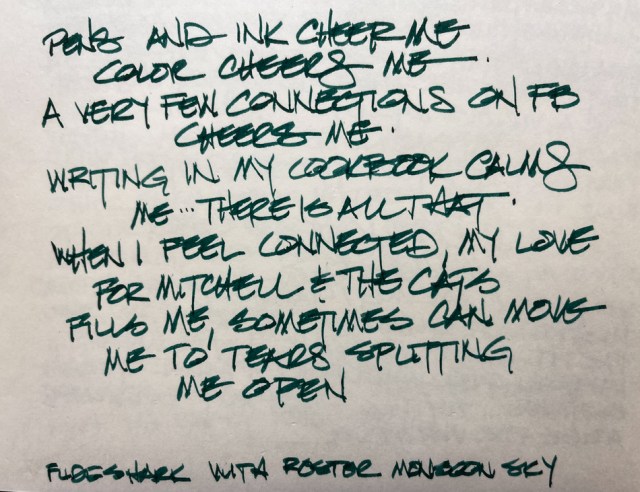 PENS AND INK CHEER ME
COLOR CHEERS ME.
A VERY FEW CONNECTIONS ON FB
CHEERS ME.
WRITING IN MY LOOKBOOK CALMS
ME... THERE IS ALL THAT.
WHEN I FEEL CONNECTED, MY LOVE
FOR MITCHELL & THE CATS
FILLS ME, SOMETIMES CAN MOVE
ME TO TEARS SPLITTING
ME OPEN
FUDE SHARK WITH MONSOON SKY